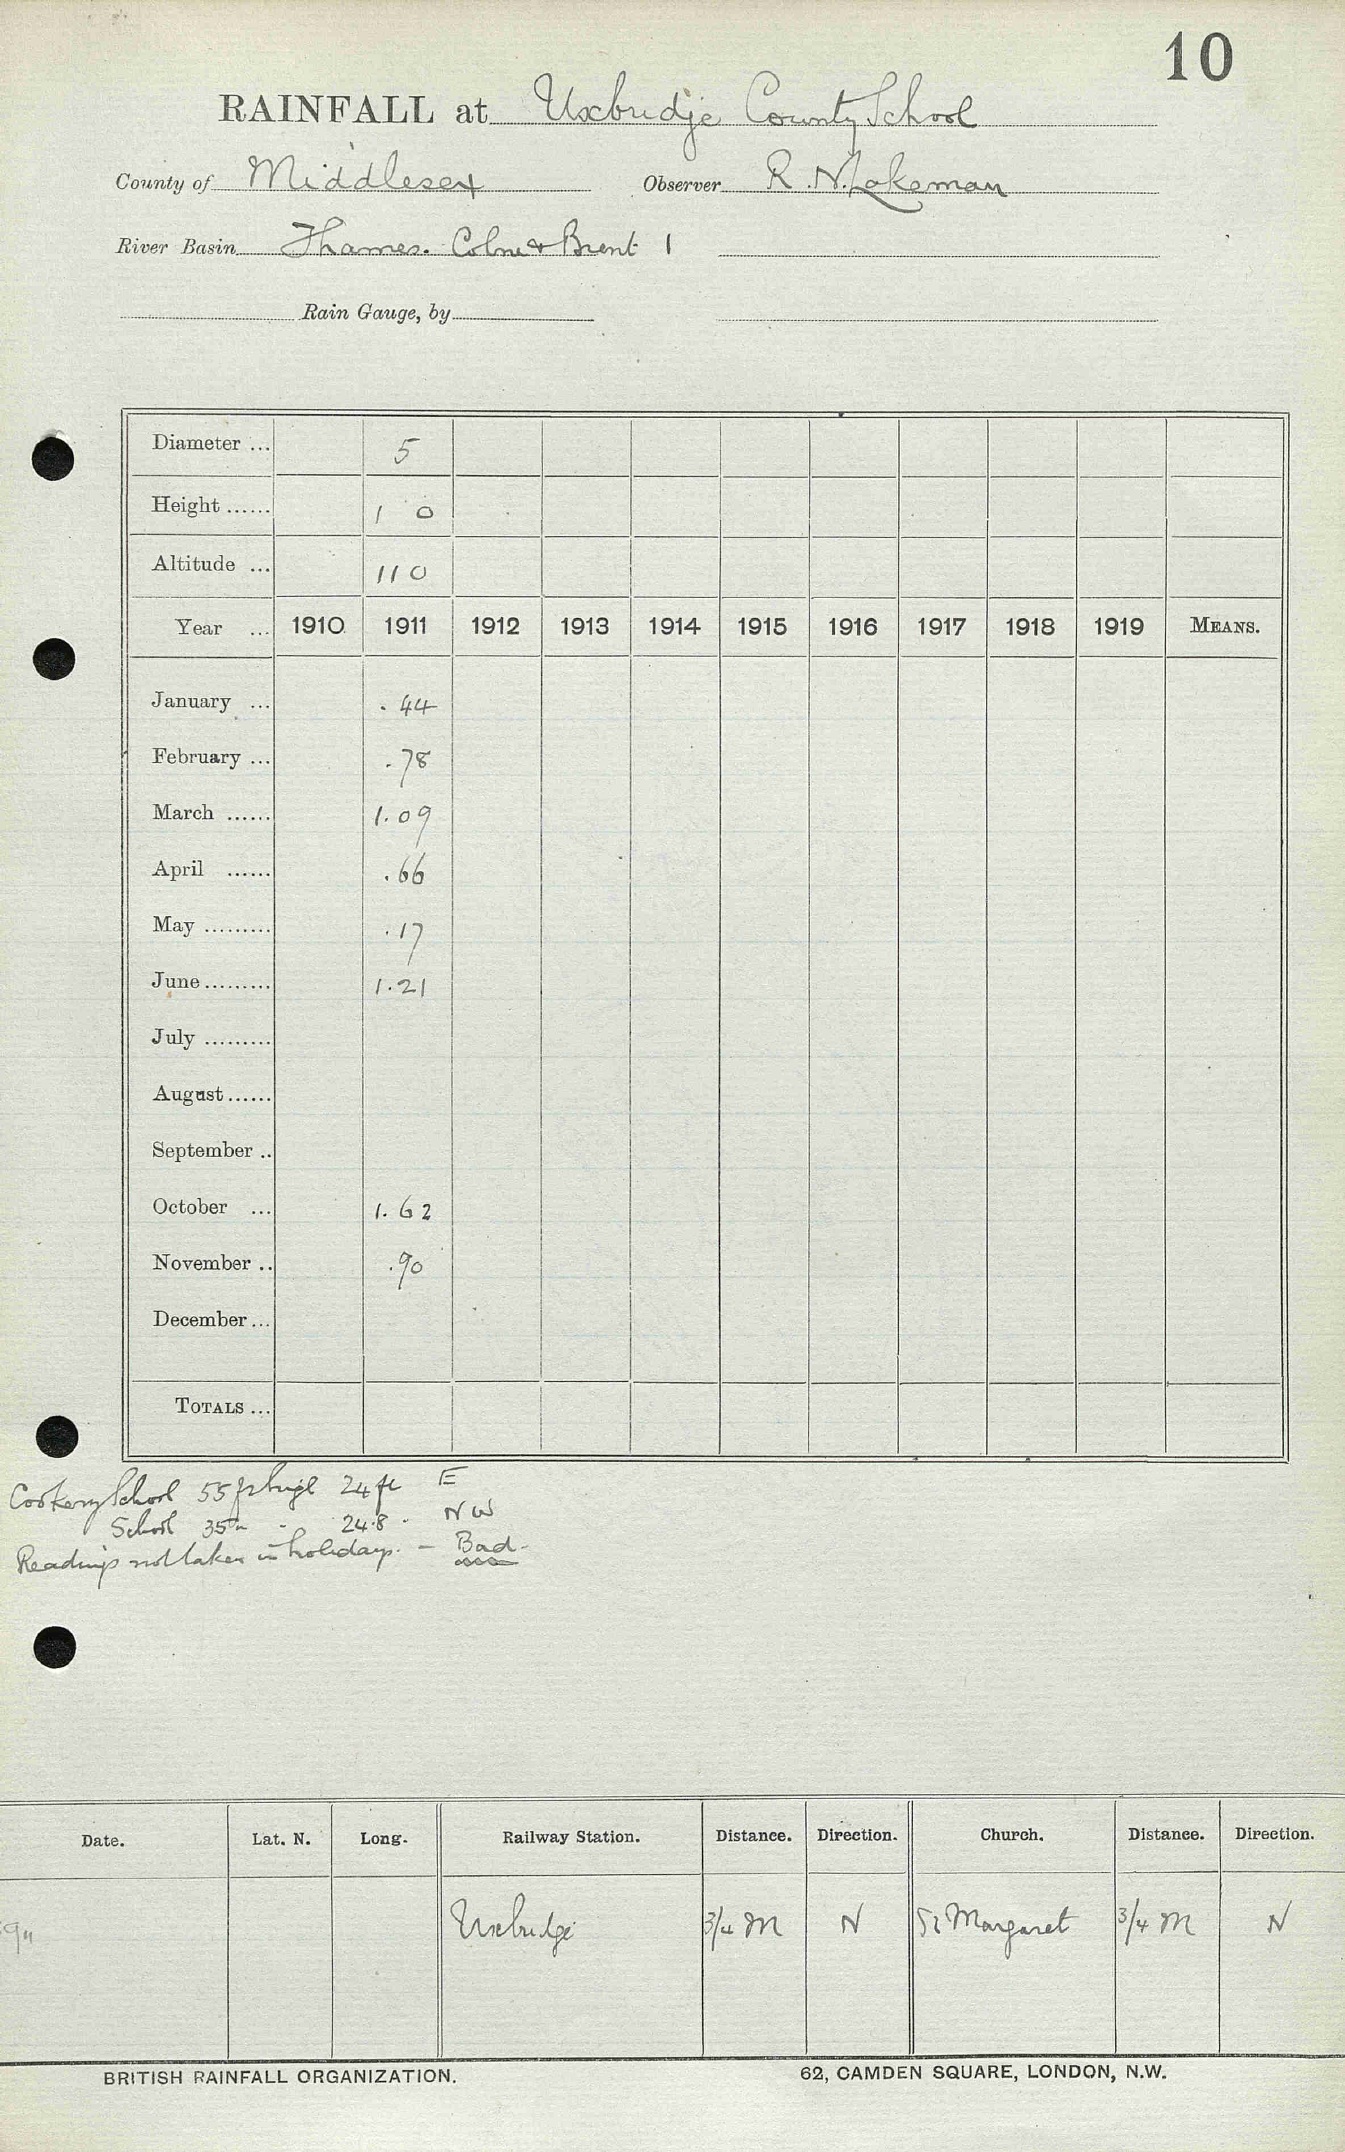 10
RAINFALL at Uxbridge County School
County of Middlesex Observer R. N. Lakeman
River Basin Thames. Colne & Brent 1
Rain Gauge, by
Diameter ... 5
Height ...... 1 0
Altitude ... 110
Year ... 1910 1911 1912 1913 1914 1915 1916 1917 1918 1919 MEANS.
January ... .44
February ... .78
March ...... 1.09
April ...... .66
May ......... .17
June ......... 1.21
July .........
August ......
September ..
October ... 1.62
November .. .90
December ...
TOTALS ...
Cookery School 55 ft high 24 ft E
School 35 " - 24.8 - NW
Readings not taken in holidays. - Bad.
Date. Lat. N. Long. Railway Station. Distance. Direction. Church. Distance. Direction.
Uxbridge 3/4 M N St Margaret 3/4 M N
BRITISH RAINFALL ORGANIZATION. 62, CAMDEN SQUARE, LONDON, N.W.